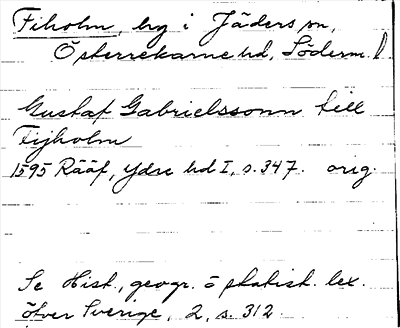 Fiholm, hrg i Jäders sn,
Österrekarne hd, Söderm. l
Gustaf Gabrielssonn till
Fijholm
1595 Rääf, Ydre hd I, s. 347. orig.
Se Hist., geogr. o statist. lex.
över Sverige, 2, s. 312.